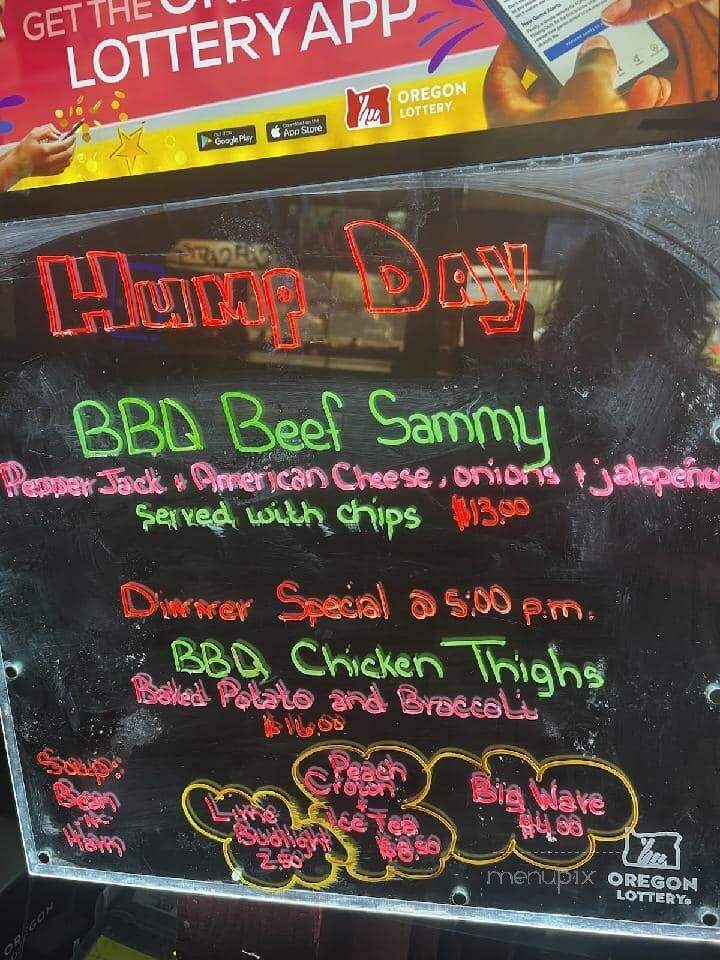 GET THE
LOTTERY APP
New Game Alerts
GET IT ON
Google Play
Download on the
App Store
OREGON
LOTTERY.
Hump Day
BBQ Beef Sammy
Pepper Jack + American Cheese, onions + jalapeño
Served with chips $13.00
Dinner Special @ 5:00 p.m.
BBQ Chicken Thighs
Baked Potato and Broccoli
$16.00
Soup:
Bean
n
Ham
Lime
Budlight
2.50
Peach
Crown
+
Ice Tea
$8.50
Big Wave
$4.00
menupix
OREGON
LOTTERY®
OREGON